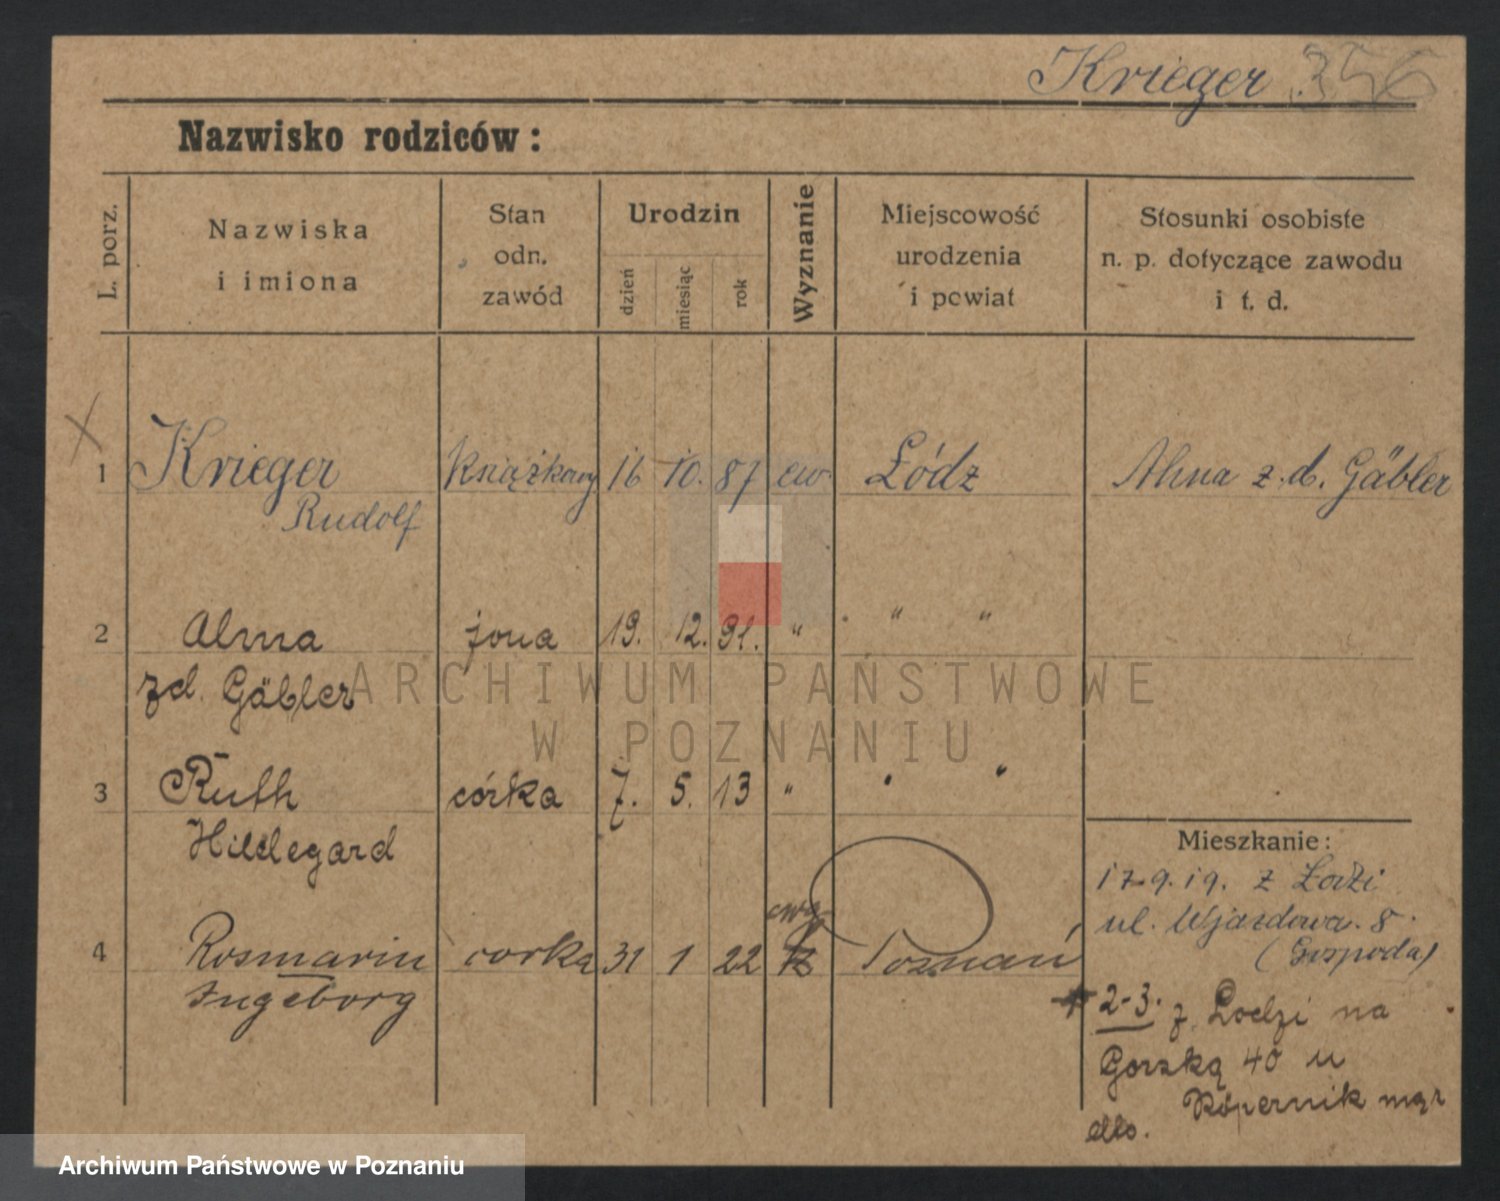 Krieger 356
Nazwisko rodziców :
L. porz.
Nazwiska
i imiona
Stan
odn.
zawód
Urodzin
dzień
miesiąc
rok
Wyznanie
Miejscowość
urodzenia
i powiat
Stosunki osobiste
n. p. dotyczące zawodu
i t. d.
1 Krieger Książkowy 16 10. 87 ew. Łódź Alma z. d. Gäbler
Rudolf
2 Alma żona 19. 12. 91. " " "
zd. Gäbler
3 Ruth córka 7. 5. 13 " " "
Hildegard
Mieszkanie :
17.9.19. z Łodzi
ul. Wjazdowa 8.
(Gospoda)
ewg
4 Rosmarin córka 31 1 22 Poznań
Ingeborg
2-3. z Lodzi na
Gorzką 40 u
Kopernik
ARCHIWUM PAŃSTWOWE
W POZNANIU
Archiwum Państwowe w Poznaniu